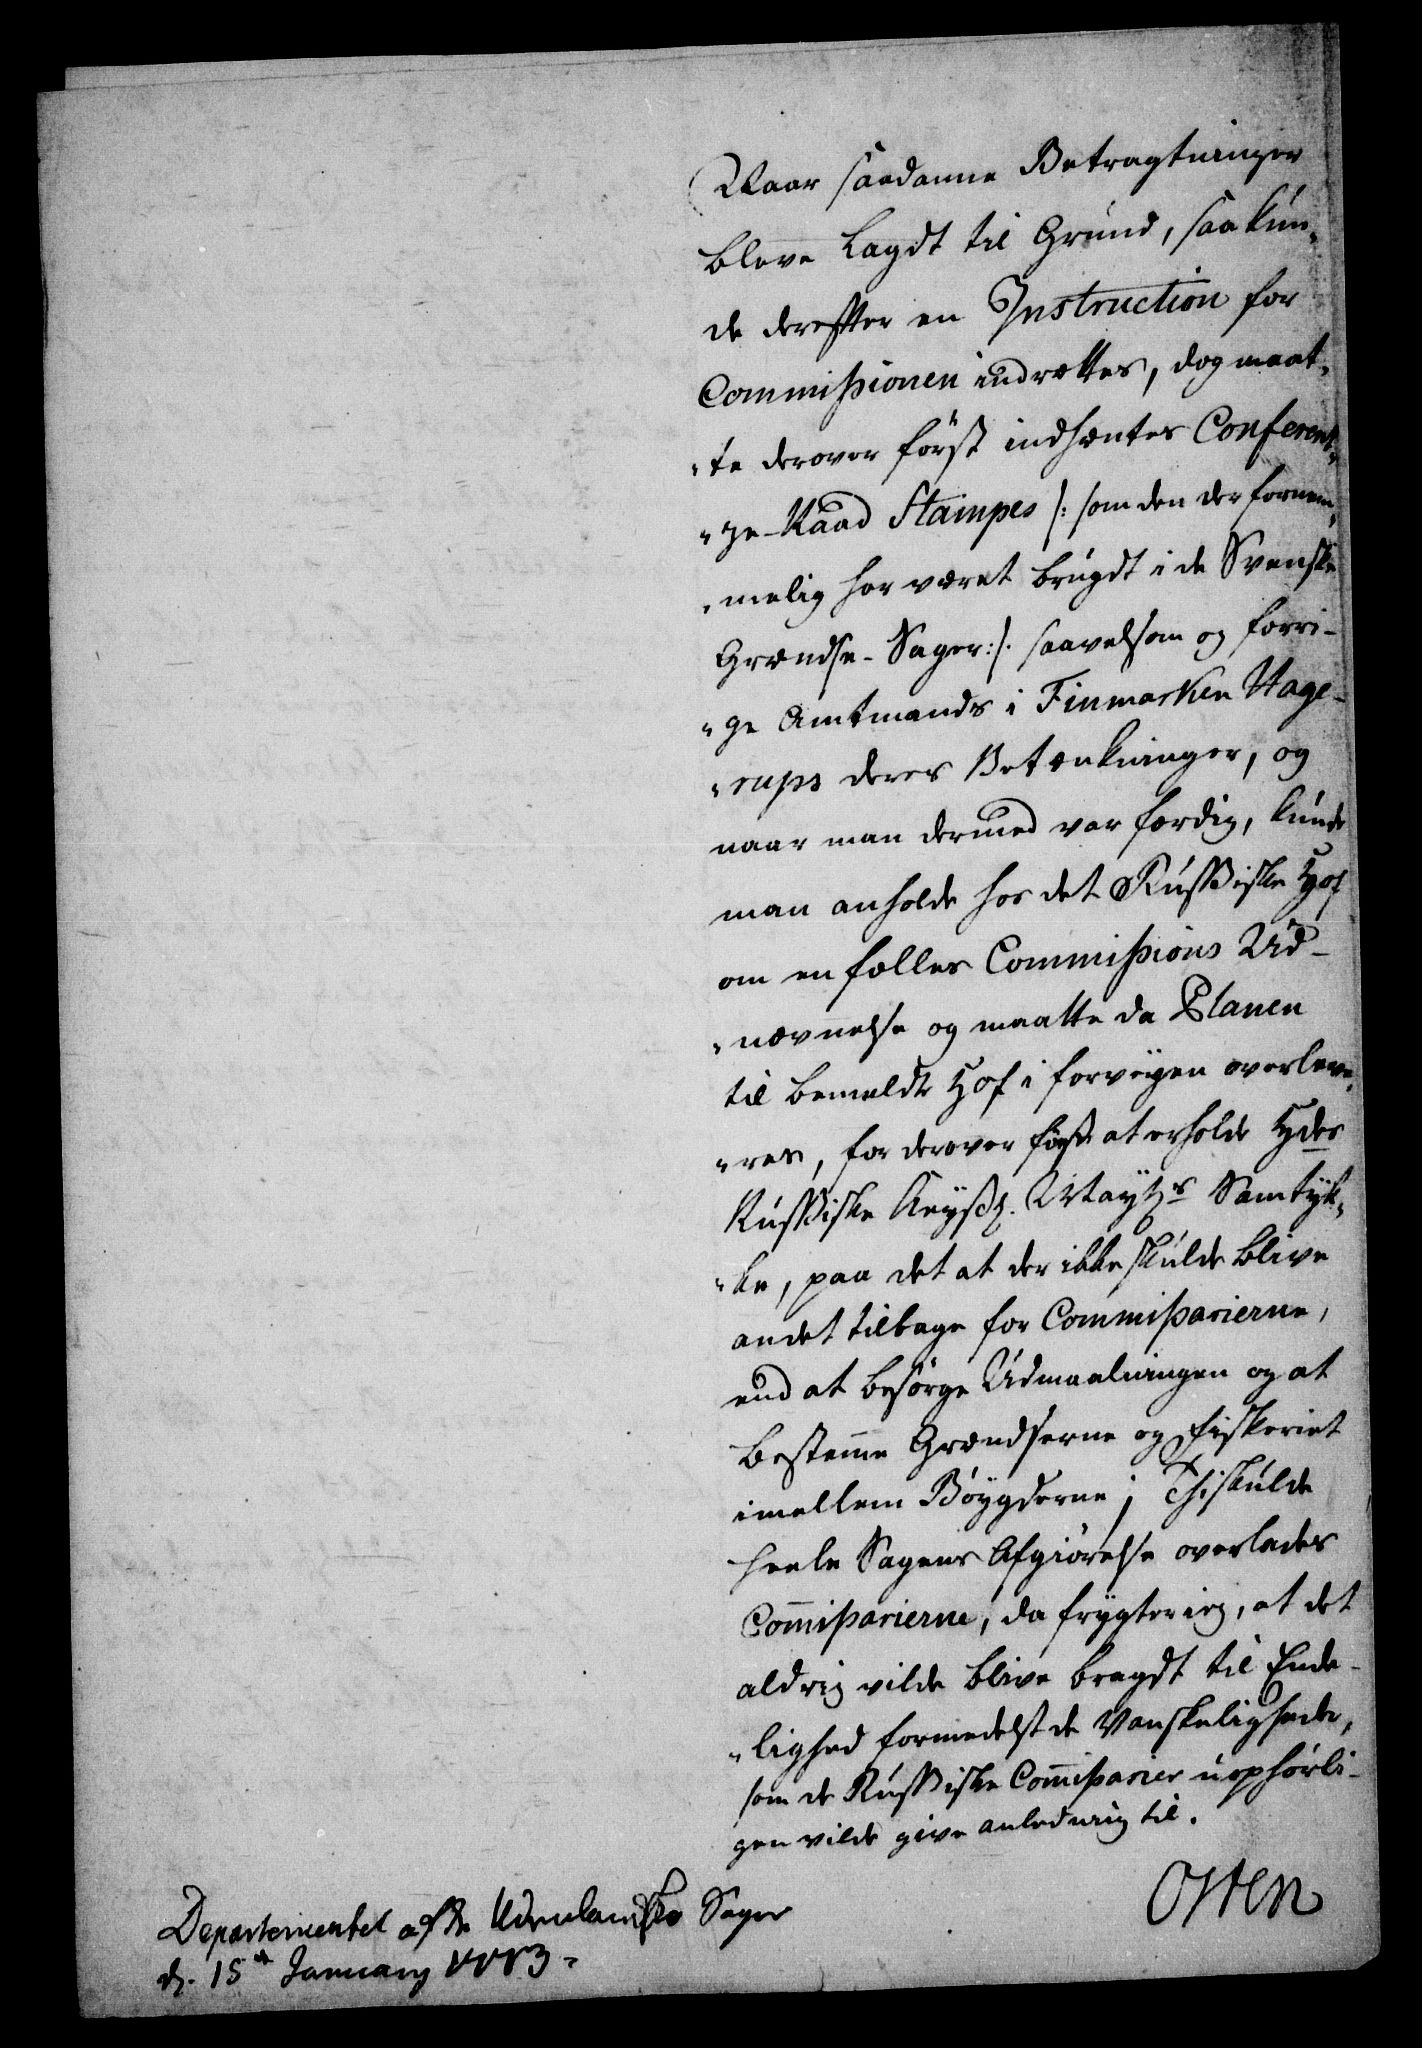 Naar saadanne Betragtninger
bleve Lagdt til Grund, saa kun-
de derefter en Instruction for
Commissionen indrettes, dog maat-
"te derover först indhæntes Conferent-
"ze-Raad Stampes /: som den der fornem-
"melig har været brugdt i de Svenske
Grændse-Sager :/. saavelsom og forri-
"ge Amtmands i Finmarken Hage-
"rups deres Betænkninger, og
naar man dermed var færdig, kunde
man anholde hos det Russiske Hof
om en fælles Commissions Ud-
"nævnelse og maatte da Planen
til bemeldte Hof i forvejen overleve-
"res, for derover först at erholde Hdes
Russiske Keyßl. Mayts Samtyk-
"ke, paa det at der ikke skulde blive
andet tilbage for Commissarierne,
end at besörge Udmaalningen og at
bestemme Grændserne og Fiskeriet
imellem Böygderne; Thi skulde
heele Sagens Afgiörelse overlades
Com̄issarierne, da frygter ieg, at det
aldrig vilde blive bragdt til Ende-
"lighed formedelst de Vanskeligheder,
som de Russiske Com̄issarier uophörli-
gen vilde give anledning til.
Osten
Departementet af de Udenlandske Sager
d. 15de January 1773.